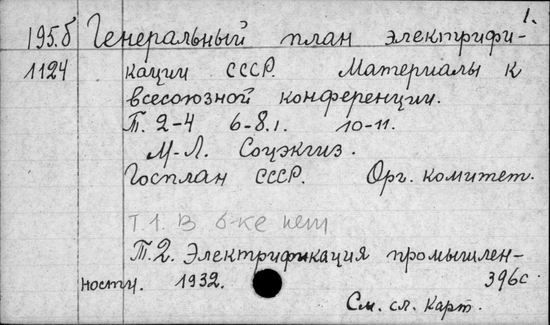 1.
195.б Генеральный план электрифи-
1124 кации СССР. Материалы к
всесоюзной конференции.
Т. 2-4 6-8.1. 10-11.
М-Л. Соцэкгиз.
Госплан СССР. Орг. комитет.
Т 1. В б-ке нет
Т.2. Электрификация промышлен-
ности. 1932. 396с.
См. сл. карт.